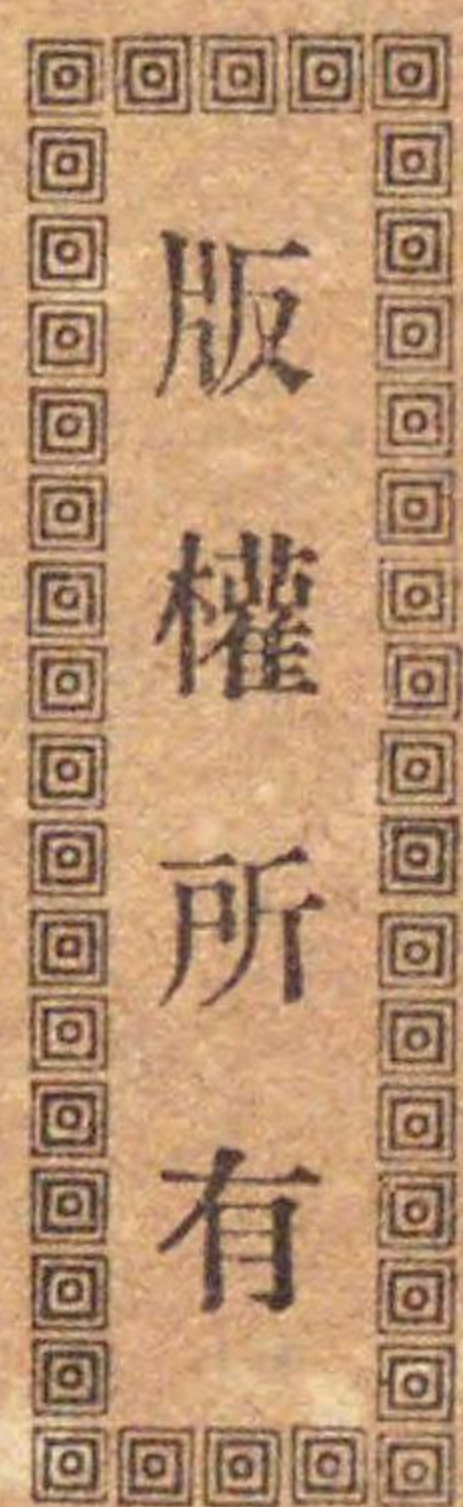 版權所有